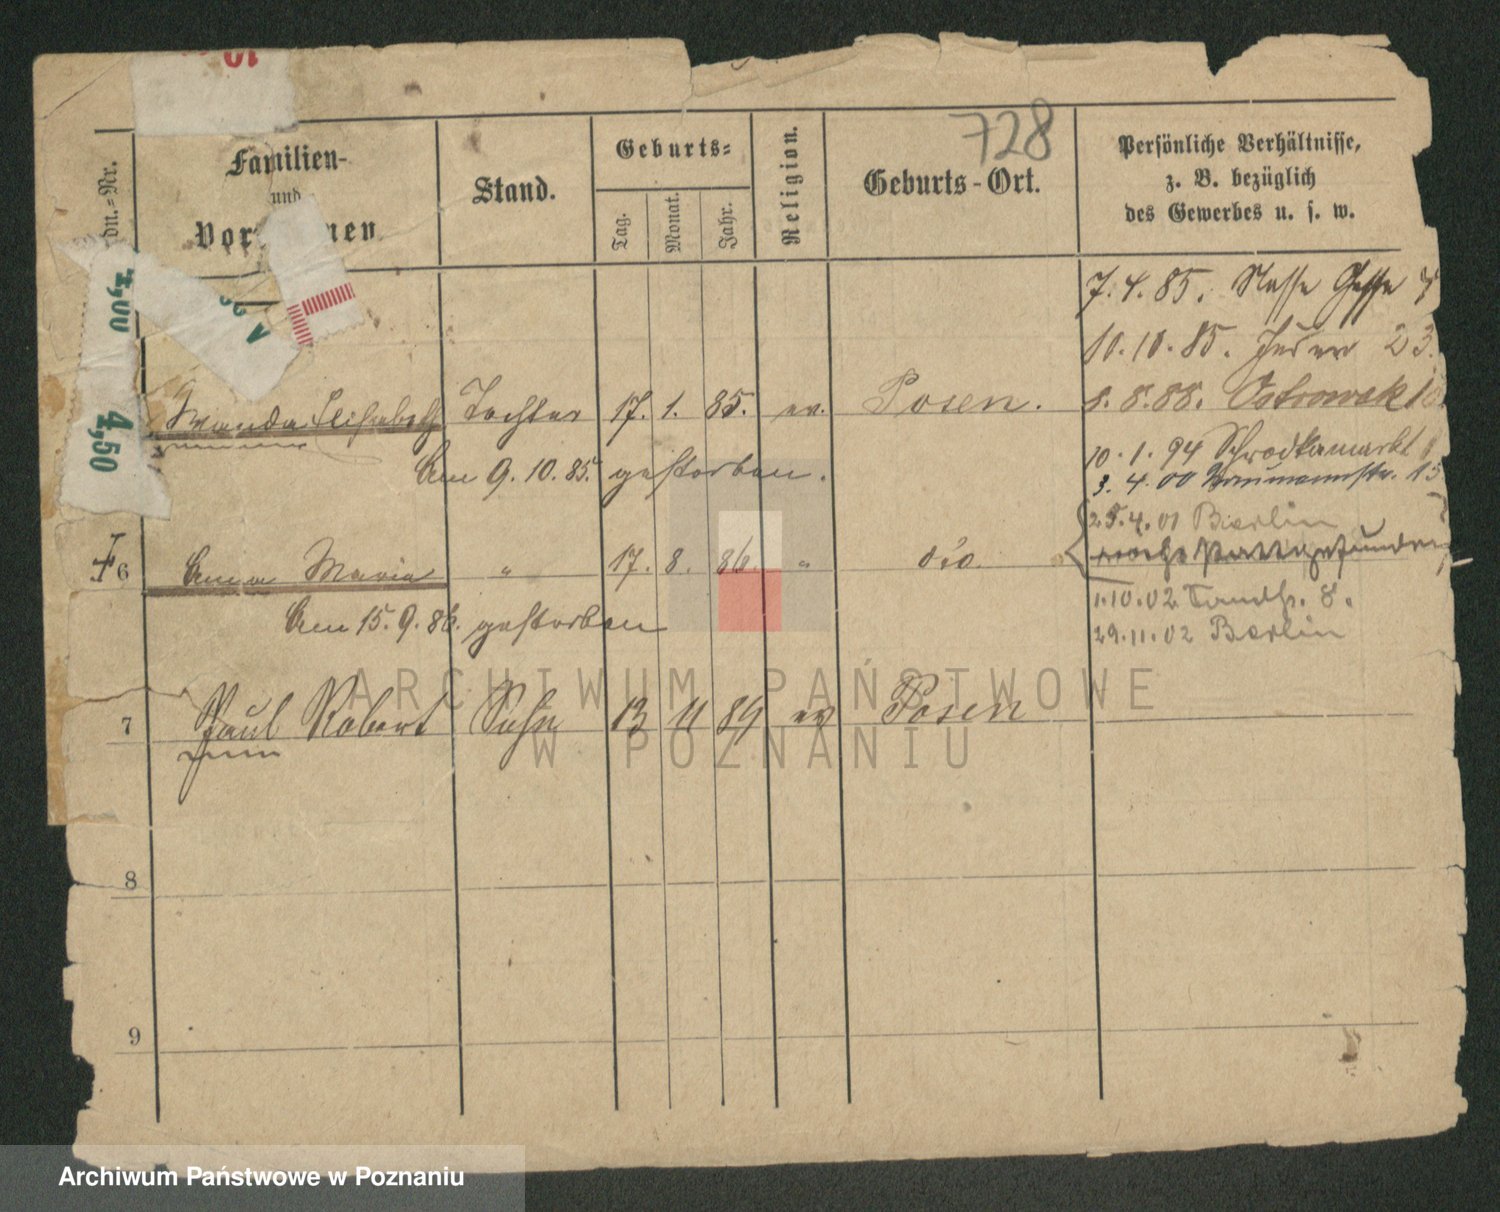 10
728
dn.=Nr.
Familien-
und
Stand.
Geburts=
Tag.
Monat.
Jahr.
Religion.
Geburts-Ort.
Persönliche Verhältnisse,
z. B. bezüglich
des Gewerbes u. s. w.
1,00
4,50
7. 4. 85.
10. 10. 85. 23.
Wanda Elisabeth Tochter 17. 1. 85. ev. Posen.
8. 8. 88. Ostrowek 10
Am 9. 10. 85. gestorben.
10. 1. 94 Schrodkamarkt
3. 4. 00 Naumannstr. 15
25. 4. 01 Berlin
6 Anna Maria " 17. 8. 86. " dto.
nicht stattgefunden
Am 15. 9. 86. gestorben
1. 10. 02 8.
29. 11. 02 Berlin
7 Paul Robert Sohn 13 11 89 ev Posen
8
9
ARCHIWUM PAŃSTWOWE
W POZNANIU
Archiwum Państwowe w Poznaniu